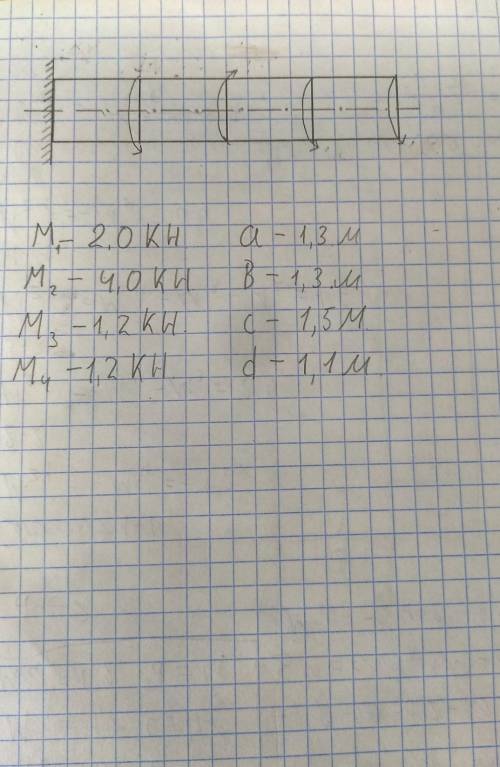 M₁ - 2,0 КН a - 1,3 м
M₂ - 4,0 КН B - 1,3 м
M₃ - 1,2 КН. c - 1,5 м
M₄ - 1,2 КН d - 1,1 м.